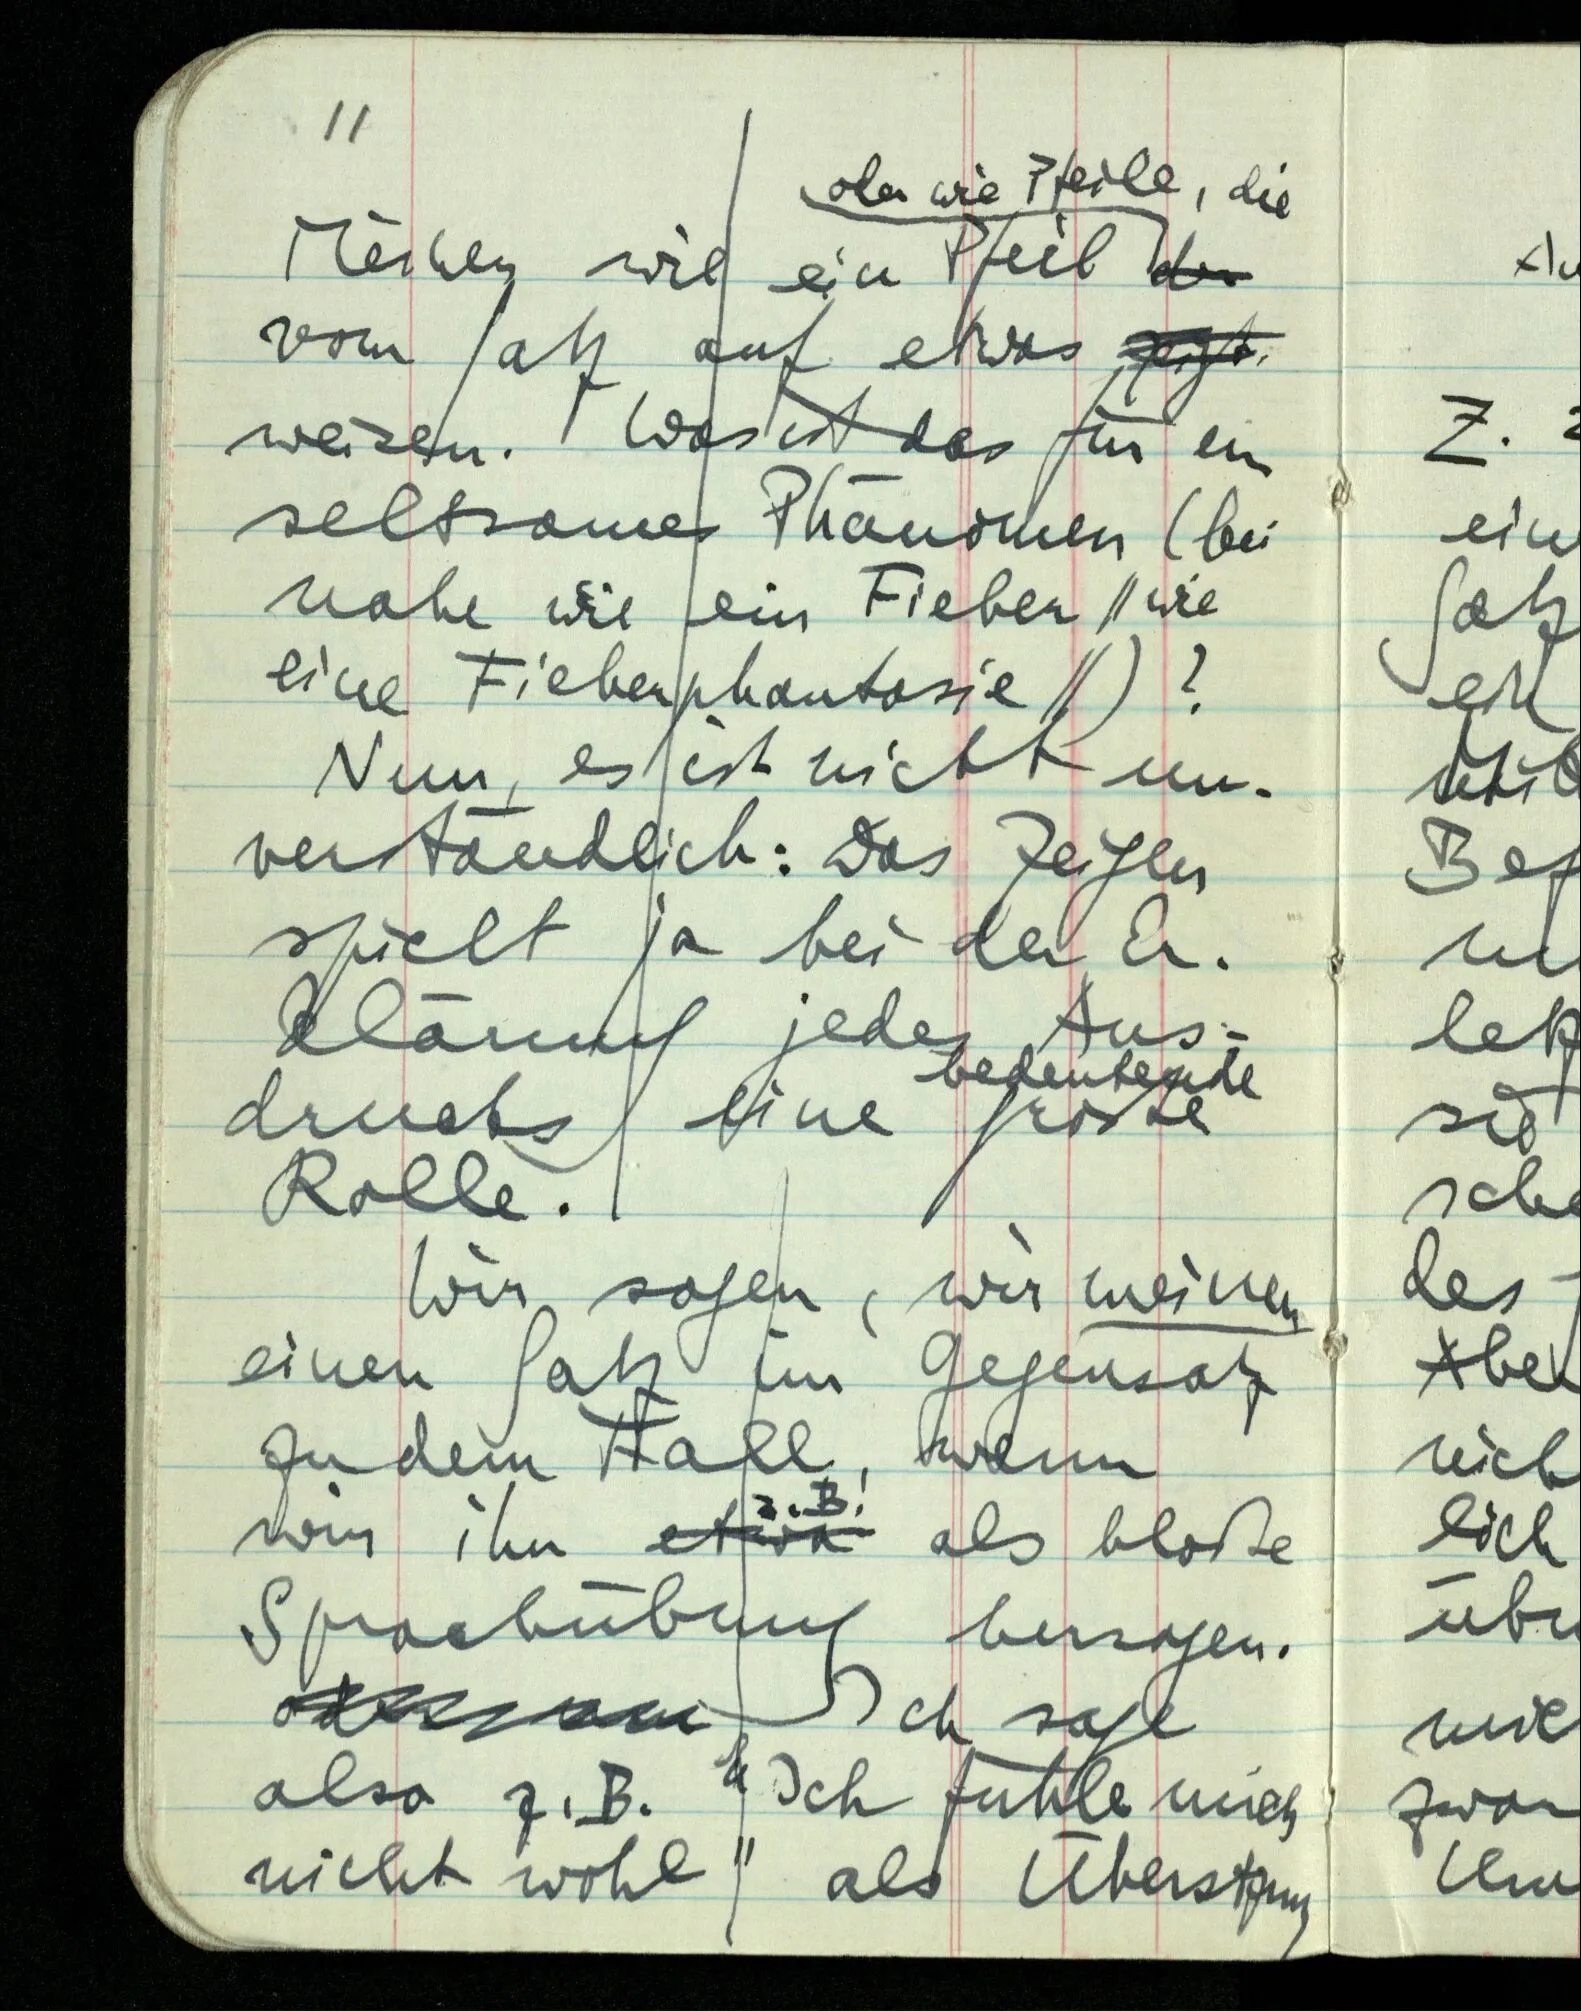 11
oder wie Pfeile, die
Meinen wie ein Pfeil der
vom Satz auf etwas zeigt.
weisen. Was ist das für ein
seltsames Phänomen (bei
nahe wie ein Fieber // wie
eine Fieberphantasie //) ?
Nun, es ist nicht un-
verständlich: Das Zeigen
spielt ja bei der Er-
klärung jedes Aus-
bedeutende
drucks eine große
Rolle.
Wir sagen, wir meinen
einen Satz im Gegensatz
zu dem Fall, wenn
z.B.
wir ihn etwa als bloße
Sprachübung hersagen.
Ich sage
also z.B. "Ich fühle mich
nicht wohl" als Übersetzung
Z.
ein
Satz
ein
Bef
des
Abe
nich
lich
übu
mic
zwar